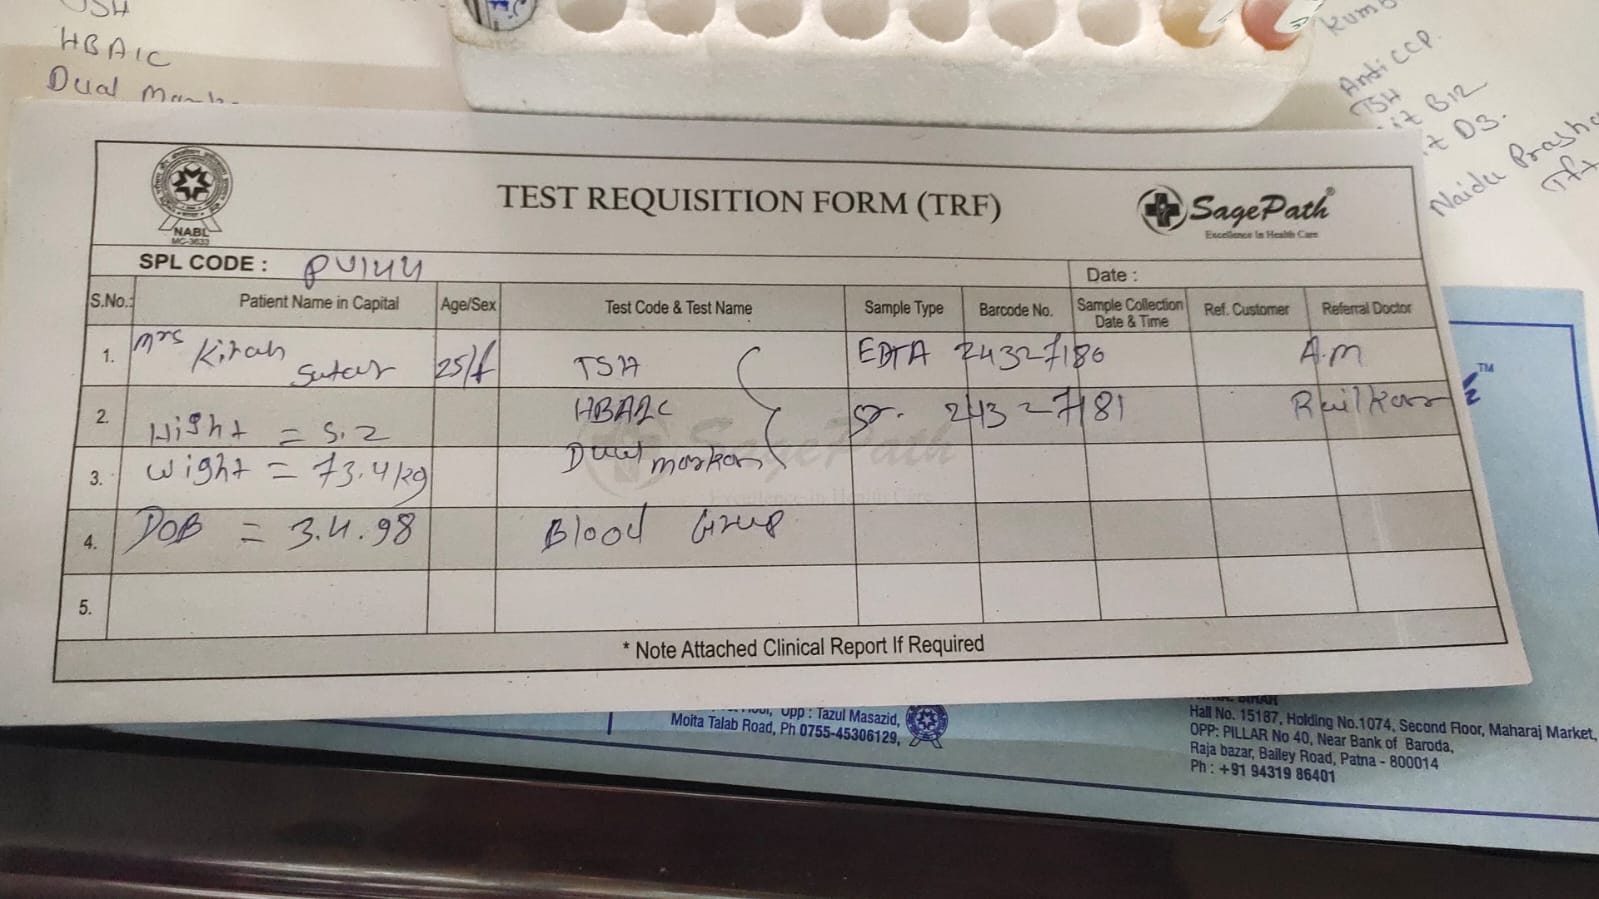 TSH
HBA1C
Dual
Anti CCP.
TSH
B12
D3.
Naidu
NABL
MC-3633
TEST REQUISITION FORM (TRF)
SagePath®
Excellence In Health Care
SPL CODE : PU144
Date :
S.No.: Patient Name in Capital Age/Sex Test Code & Test Name Sample Type Barcode No. Sample Collection Date & Time Ref. Customer Referral Doctor
1. Mrs Kiran Sutar 25/f TSH EDTA 24327180 A.M
2. Hight = 5.2 HBA1C Sr. 24327181
3. Wight = 73.4 kg Dual marker
4. DOB = 3.4.98 Blood Group
5.
SagePath
Excellence in Health Care
* Note Attached Clinical Report If Required
TM
Opp : Tazul Masazid,
Moita Talab Road, Ph 0755-45306129,
BIHAR
Hall No. 15187, Holding No.1074, Second Floor, Maharaj Market,
OPP: PILLAR No 40, Near Bank of Baroda,
Raja bazar, Bailey Road, Patna - 800014
Ph : +91 94319 86401